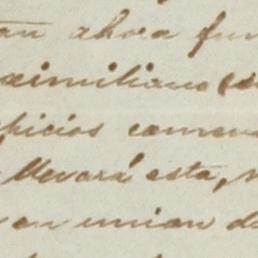 an ahora fun
aximiliano (
spicios comen
llevará esta,
en union d